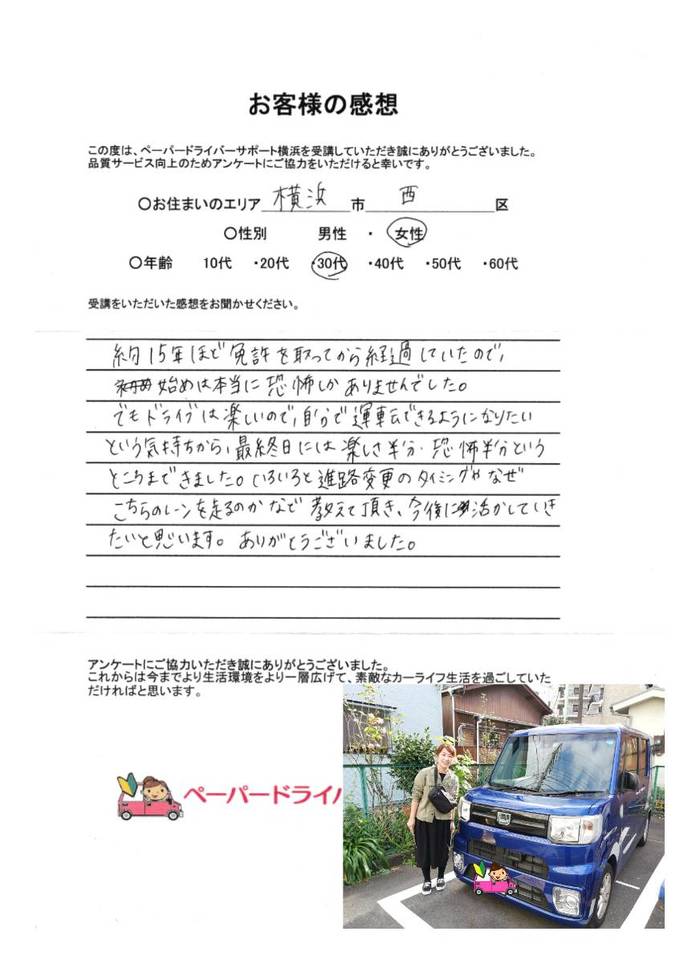 お客様の感想
この度は、ペーパードライバーサポート横浜を受講していただき誠にありがとうございました。
品質サービス向上のためアンケートにご協力をいただけると幸いです。
〇お住まいのエリア 横浜 市 西 区
〇性別 男性 ・ 女性
〇年齢 10代 ・20代 ・30代 ・40代 ・50代 ・60代
受講をいただいた感想をお聞かせください。
約15年ほど免許を取ってから経過していたので、
始めは本当に恐怖しかありませんでした。
でもドライブは楽しいので、自分で運転できるようになりたい
という気持ちから、最終日には楽しさ半分・恐怖半分という
ところまできました。いろいろと進路変更のタイミングやなぜ
こちらのレーンを走るのかなで教えて頂き、今後に活かしていき
たいと思います。ありがとうございました。
アンケートにご協力いただき誠にありがとうございました。
これからは今までより生活環境をより一層広げて、素敵なカーライフ生活を過ごしていた
だければと思います。
ペーパードライバ